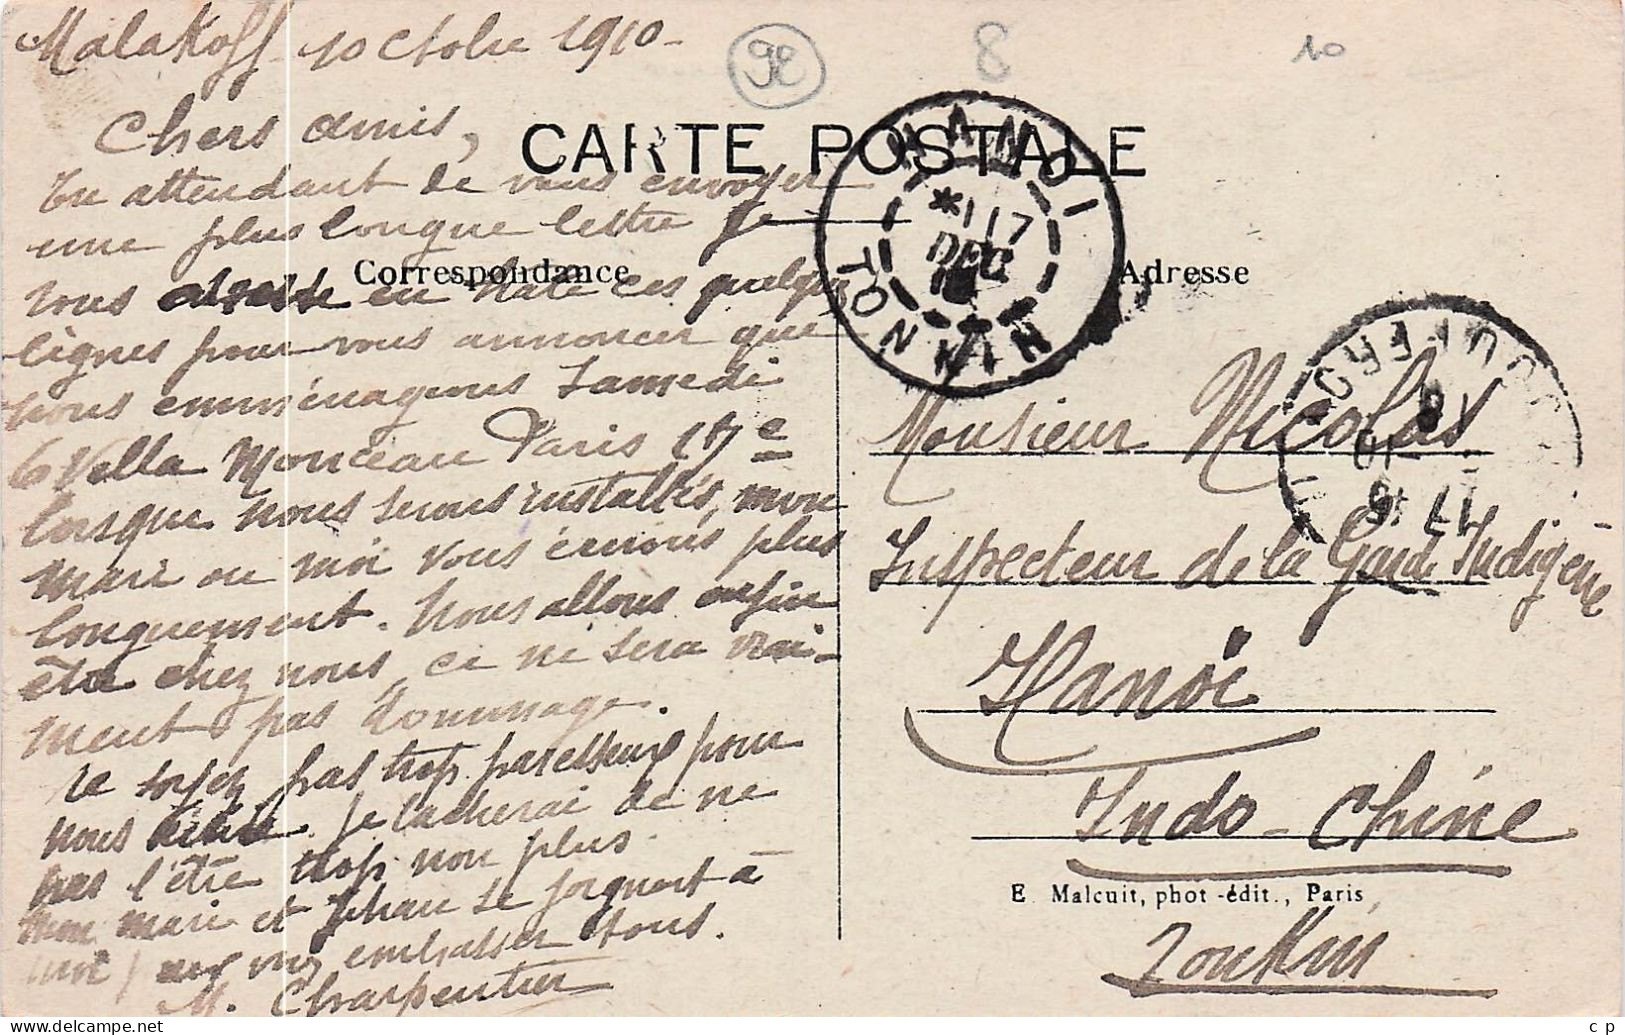 Malakoff 10 octobre 1910-
92
8
10
Chers amis,
CARTE POSTALE
En attendant de vous envoyer
une plus longue lettre je
Correspondance
Adresse
vous adresse en hate ces quelques
lignes pour vous annoncer que
nous emménageons Samedi
6 Villa Monceau Paris 17e
lorsque nous serons installés, mon
mari ou moi vous écrirons plus
longuement. Nous allons enfin
être chez nous, ce ne sera vrai-
ment pas dommage.
Ne soyez pas trop paresseux pour
nous écrire. Je tacherai de ne
pas l'être trop non plus.
Mon mari et Jehan se joignent à
moi pour vous embrasser tous.
M. Charpentier
HANOI
*117
DEC
TONKIN
Monsieur Nicolas
Inspecteur de la Garde Indigène
Hanoï
Indo-Chine
E. Malcuit, phot-édit., Paris
Tonkin
www.delcampe.net
c p